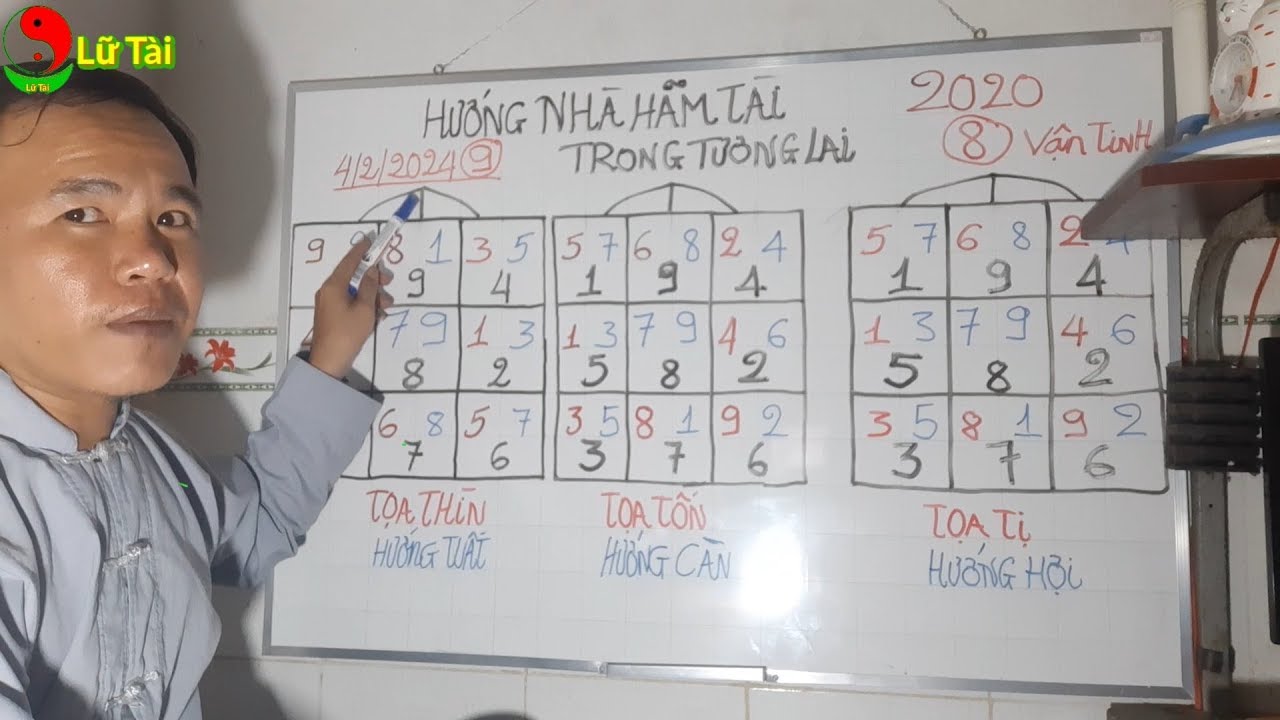 Lữ Tài
Lữ Tài
HƯỚNG NHÀ HÃM TÀI
TRONG TƯƠNG LAI
4/2/2024 9
2020
8 Vận Tinh
9 8 1 3 5
9 4
7 9 1 3
8 2
6 8 5 7
7 6
TỌA THÌN
HƯỚNG TUẤT
5 7 6 8 2 4
1 9 4
1 3 7 9 4 6
5 8 2
3 5 8 1 9 2
3 7 6
TỌA TỐN
HƯỚNG CÀN
5 7 6 8 2 4
1 9 4
1 3 7 9 4 6
5 8 2
3 5 8 1 9 2
3 7 6
TỌA TỊ
HƯỚNG HỢI